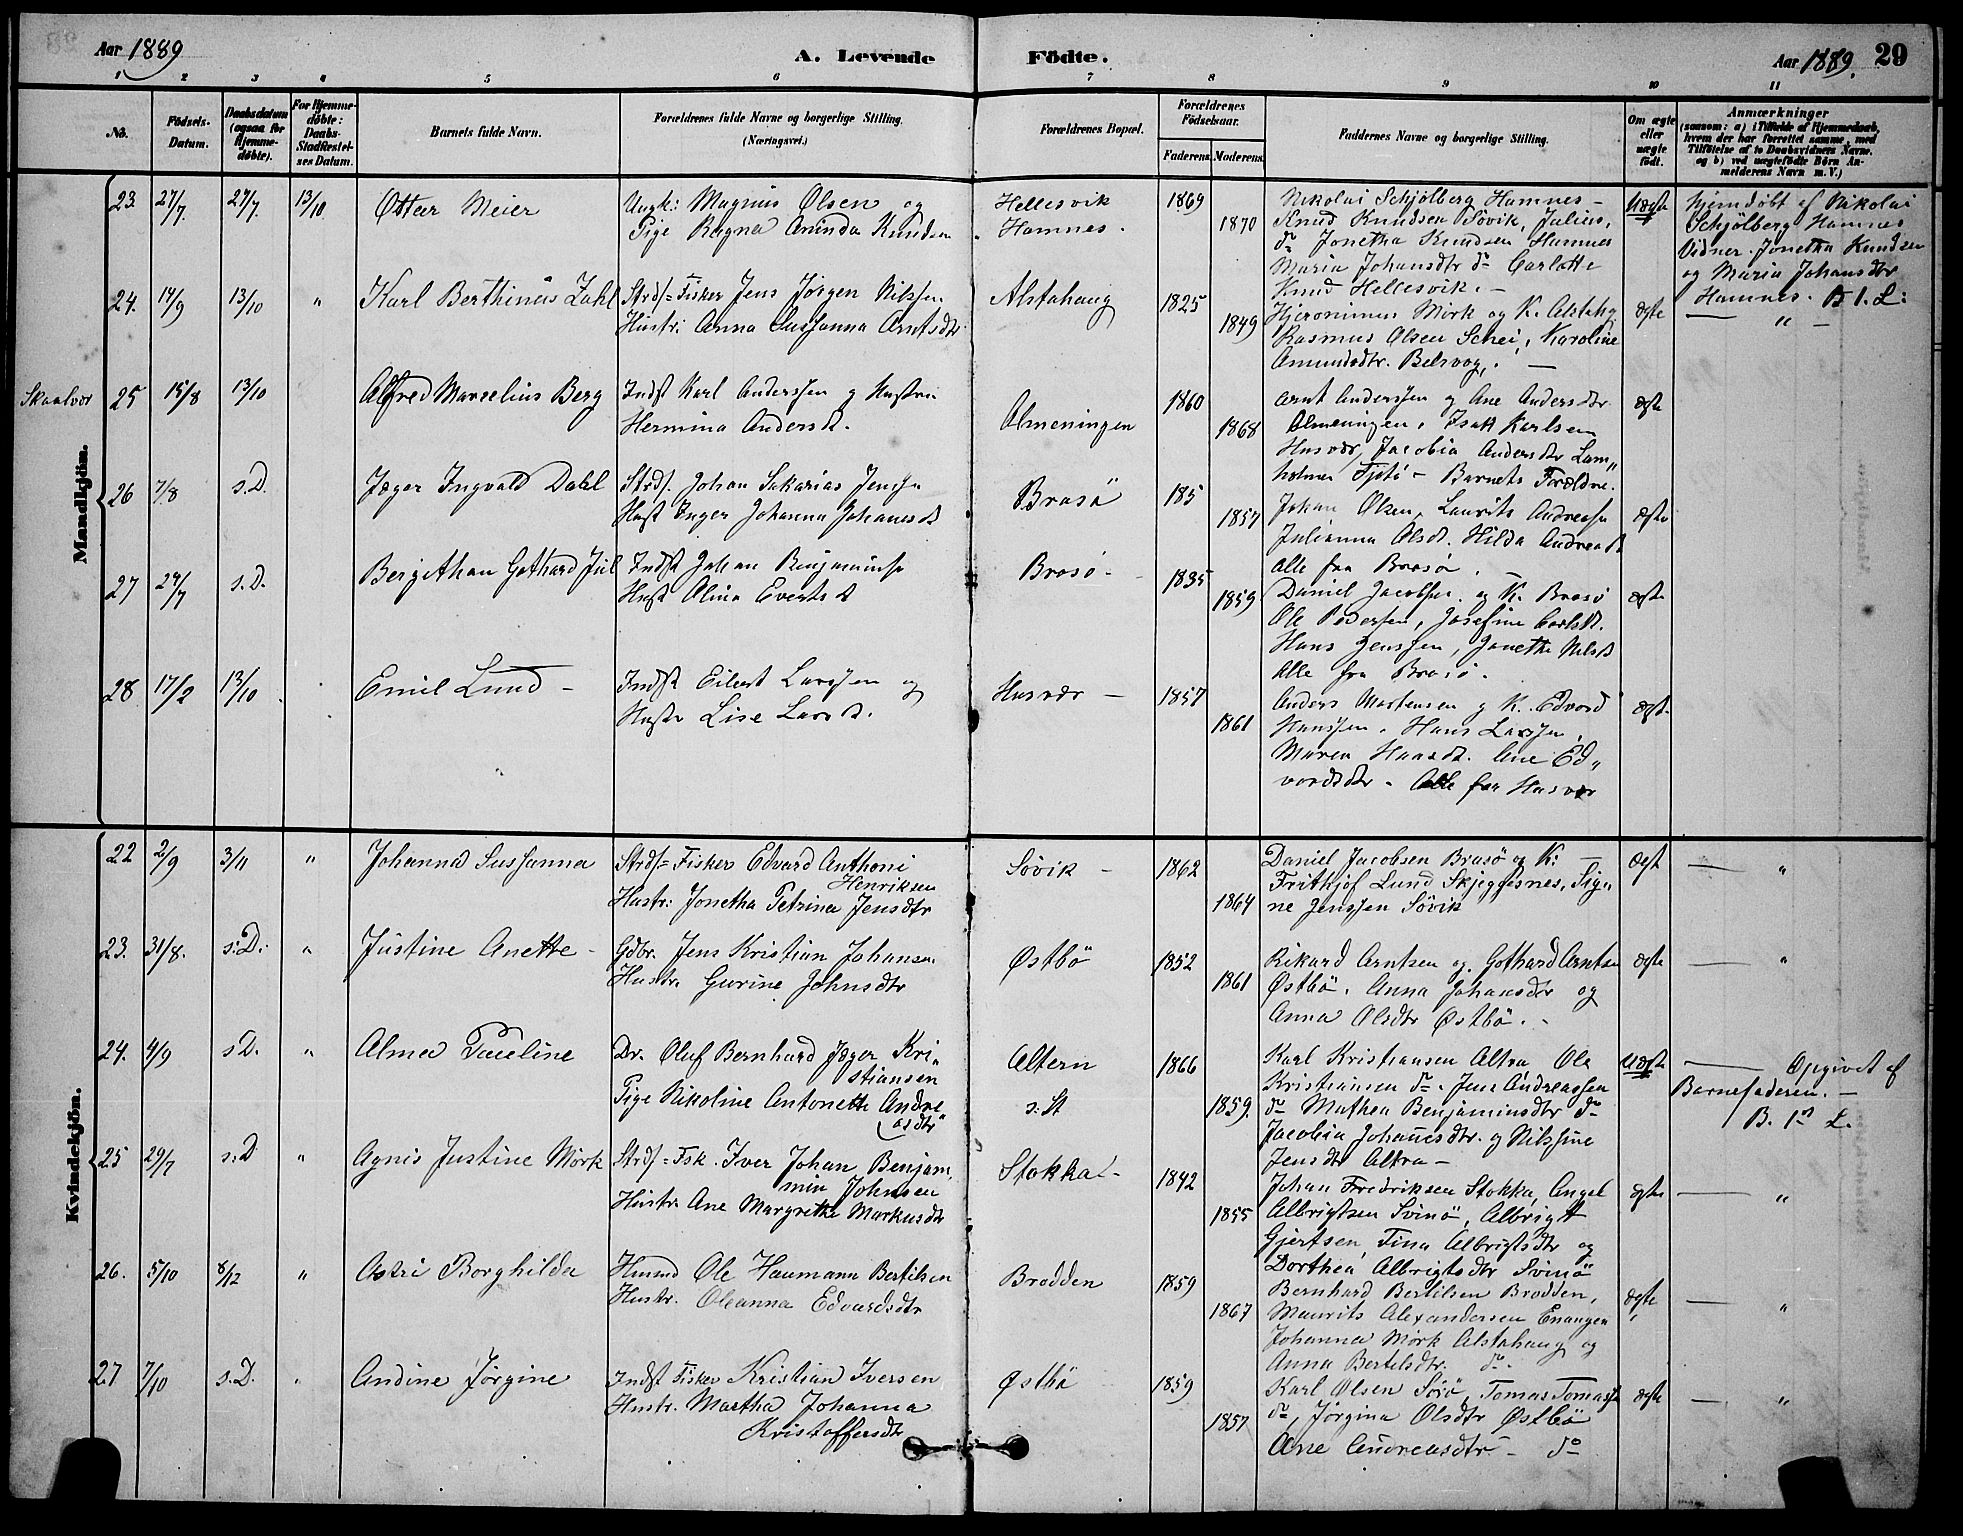 Aar 1889
A. Levende
Födte.
Aar 1889.
29
1 2 3 4 5 6 7 8 9 10 11
No.
Födsels-Datum.
Daabsdatum (ogsaa for Hjemme-döbte).
For Hjemme-döbte: Daabs-Stadfæstel-ses Datum.
Barnets fulde Navn.
Forældrenes fulde Navne og borgerlige Stilling.
(Næringsvei.)
Forældrenes Bopæl.
Forældrenes Födselsaar.
Faderens. Moderens.
Faddernes Navne og borgerlige Stilling.
Om ægte eller uægte födt.
Anmærkninger
(saasom: a) i Tilfælde af Hjemmedaab,
hvem der har forrettet samme, med
Tilföielse af to Daabsvidners Navne,
og b) ved uægtefödte Börn An-
melderens Navn m. V.)
Mandkjön.
23. 27/7. 27/7. 13/10 Otter Meier
Ungk: Magnus Olsen og
Pige Ragna Aminda Knudsen
Hellesvik
Hamnes.
1869
1870
Nikolai Schjölberg Hamnes -
Knud Knudsen Sövik, Julius,
do Jonetha Knudsen Hamnes
Maria Johansdtr do Carlotte
Knud Hellesvik. -
Uægte
hjemdöbt af Nikolai
Schjölberg Hamnes
Vidner Jonetha Knudsen
og Maria Johansdtr
Hamnes. B 1. L:
24. 14/9 13/10 " Karl Berthinus Zahl
Strds= Fisker Jens Jörgen Nilssen
Hustr: Anna Sussanna Arntsdtr
Alstahaug
1825
1849
Hjeronimus Mörk og K. Alstahg
Rasmus Olsen Schei, Karoline
Amundsdtr. Belsvog, . —
ægte
— " —
Skaalvær
25 15/8 13/10 Alfred Marselius Berg
Indst Karl Anderssen g Hustru
Hermina Andersd.
Almeningen
1860
1868
Arnt Anderssen g Ane Andersdtr
Almeningen, Isak Karlsen
Husvær, Jacobia Andersdtr Lam„
holmen Tjötö - Barnets Forældre.
ægte
26 7/8 s.D. Jæger Ingvald Dahl
Strds. Johan Sakarias Jenssen
Hust Inger Johanna Johanesd
Brasö
185
1857
Johan Olsen, Laurits Andreasen
Julianna Olsd. Hilda Andreasd
alle fra Brasö. —
ægte
27 24/7 s.D. Bergithon Gothard Jul
Indst Johan Benjaminsen
Hust Olina Evertsd
Brasö -
1835
1859
Daniel Jacobsen og K. Brasö
Ole Pedersen, Josefine Carlsd.
Hans Jenssen, Janetta Nilsd
alle fra Brasö.
ægte
28 17/2 13/10 Emil Lund -
Indst Eilert Larssen og
Hustr Lise Larsd.
Husvær —
1857
1861
Anders Mortensen g K. Edvard
Hanssen. Hans Larssen,
Maren Hansd. Ane Ed„
vardsdtr - Alle fra Husvær
ægt.
Kvindekjön.
22 2/9 3/11 " Johanna Sussanna
Strds= Fisker Edvard Anthoni
Henriksen
Hustr: Jonetha Petrina Jensdtr
Sövik -
1862
1864
Daniel Jacobsen Brasö og K: —
Frithjof Lund Skjeggesnes, Sig„
ne Jenssen Sövik
ægt
— "
23. 31/8. s.D: " Justine Anette -
Gdbr. Jens Kristian Johansen
Hustr. Gurine Johnsdtr
Østbö
1852
1861
Rikard Arntsen og Gothard Arntsen
Østbö. Anna Johansdtr og
Anna Olsdtr Østbö. -
ægte
— "
24. 4/9 s.D. " Alma Pauline
Dr. Oluf Bernhard Jæger Kri„
stiansen
Pige Nikoline Antonette Andre
asdtr
Altern
s: St
1866
1859.
Karl Kristiansen Altra, Ole
Kristiansen do. Jens Andreassen
do Mathea Benjaminsdtr do
Jacobia Johanesdtr. g Nilssine
Jensdtr Altra -
Uægte
— Opgivet af
Barnefaderen. —
B. 1ste L.
25 29/7 s.D " Agnis Justine Mörk
Strds= Fsk. Iver Johan Benjam
min Johnsen
Hustr. Ane Margrethe Markusdtr
Stokka -
1842
1855
Johan Fredriksen Stokka, Angel
Albrigtsen Svinö, Albrigt
Gjertsen Fina Albrigtsdtr og
Dorthea Albrigtsdtr Svinö
ægte
— "
26. 5/10 8/12 " Astri Borghilda
Husmd Ole Haumann Bertilsen
Hustr. Oleanna Edvardsdtr
Brodden
1859
1867
Bernhard Bertilsen Brodden,
Maurits Alexandersen Enangen
Johanna Mörk Alstahaug og
Anna Bertelsdtr. do.
ægte
— "
27 7/10 s.D. " Andine Jörgine
Indst Fisker Kristian Iversen
Hustr. Martha Johanna
Kristoffersdtr
Østbö
1859
1857
Karl Olsen Sörö, Tomas Tomassen
do, Jörgina Olsdtr Østbö
Ane Andreasdtr - do
ægte
— "